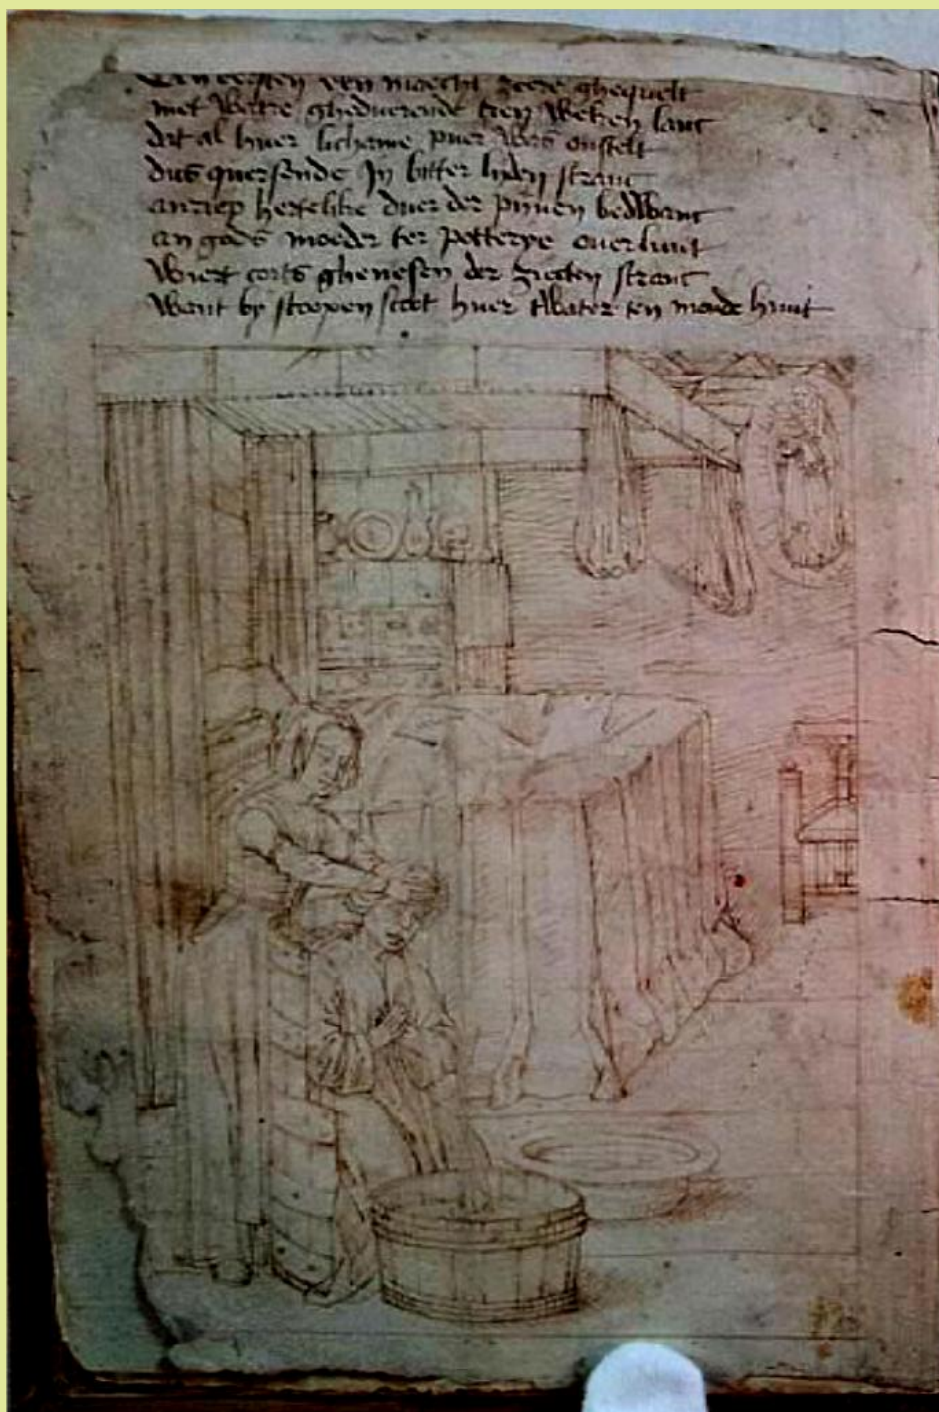 een maecht zeere ghequelt
met watre ghedueren tien weken lanc
dat al huer lichame puer was onstelt
dus quersende in bitter liden stranc
anriep hertelike duer der pinen bedwanc
an gods moeder ter potterye overluut
wiert corts ghenesen der ziecten stranc
want by stoopen scoot huer twater ten monde huut